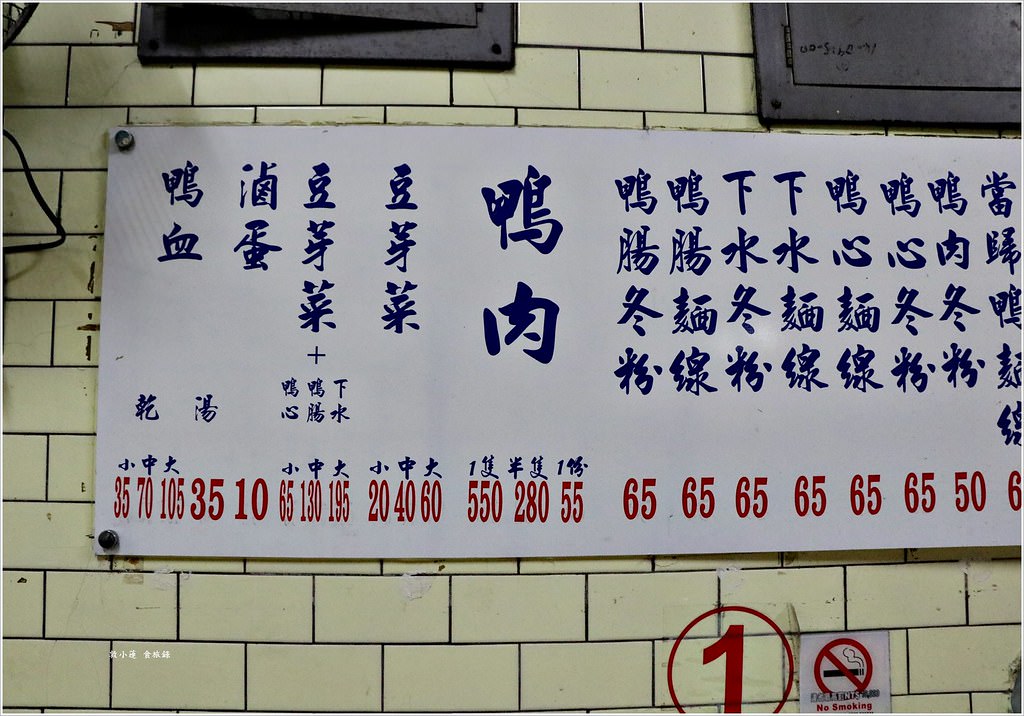 當歸鴨麵線
鴨肉冬粉
鴨心冬粉
鴨心麵線
下水麵線
下水冬粉
鴨腸麵線
鴨腸冬粉
鴨肉
豆芽菜
豆芽菜+
下水
鴨腸
鴨心
滷蛋
鴨血
湯
乾
小中大
小中大
小中大
1隻 半隻 1份
35 70 105 35 10 65 130 195 20 40 60 550 280 55 65 65 65 65 65 65 50 6
1
No Smoking
敦小蓮 食旅錄